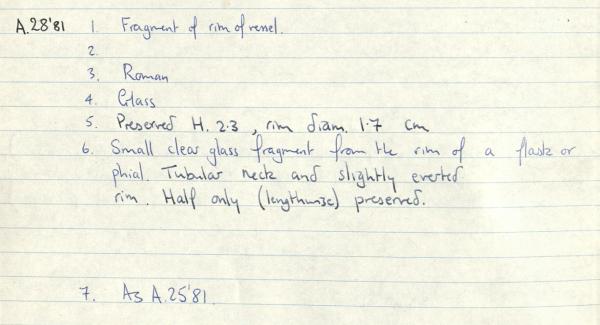 A.28'81 1. Fragment of rim of vessel.
2.
3. Roman
4. Glass
5. Preserved H. 2.3, rim diam. 1.7 cm
6. Small clear glass fragment from the rim of a flask or
phial. Tubular neck and slightly everted
rim. Half only (lengthwise) preserved.
7. As A.25'81.